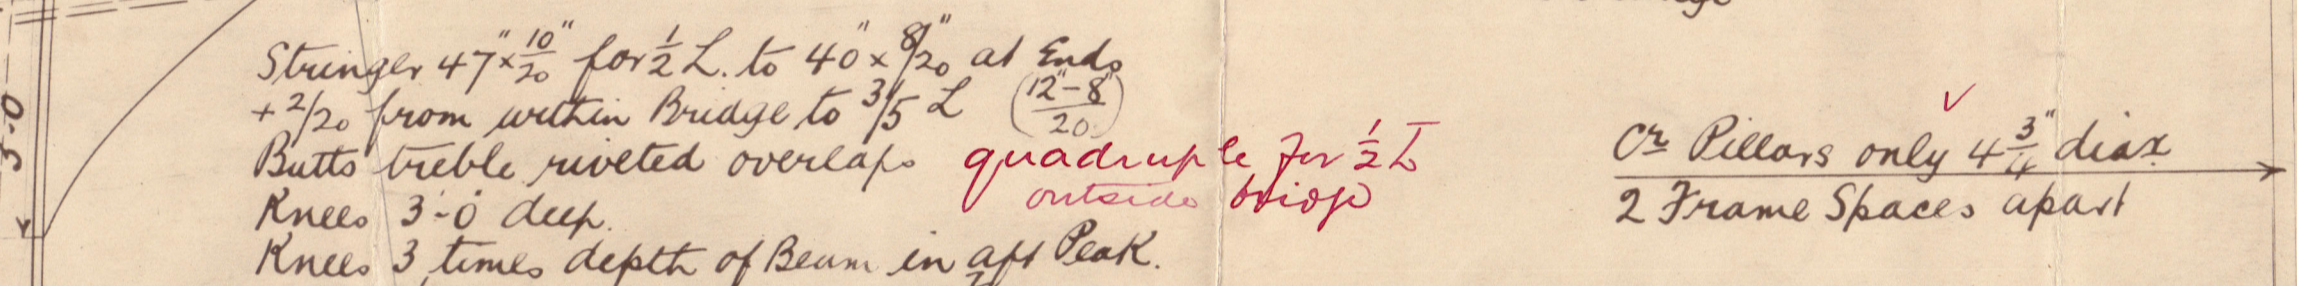 3-0
Stringer 47" × 10/20" for ½ L. to 40" × 8/20" at Ends
+ 2/20 from within Bridge to 3/5 L (12"-8"/20)
Butts treble riveted overlaps quadruple for ½ L
outside bridge
Knees 3'-0" deep.
Knees 3 times depth of Beam in aft Peak.
Cr Pillars only 4 3/4" diar
2 Frame Spaces apart